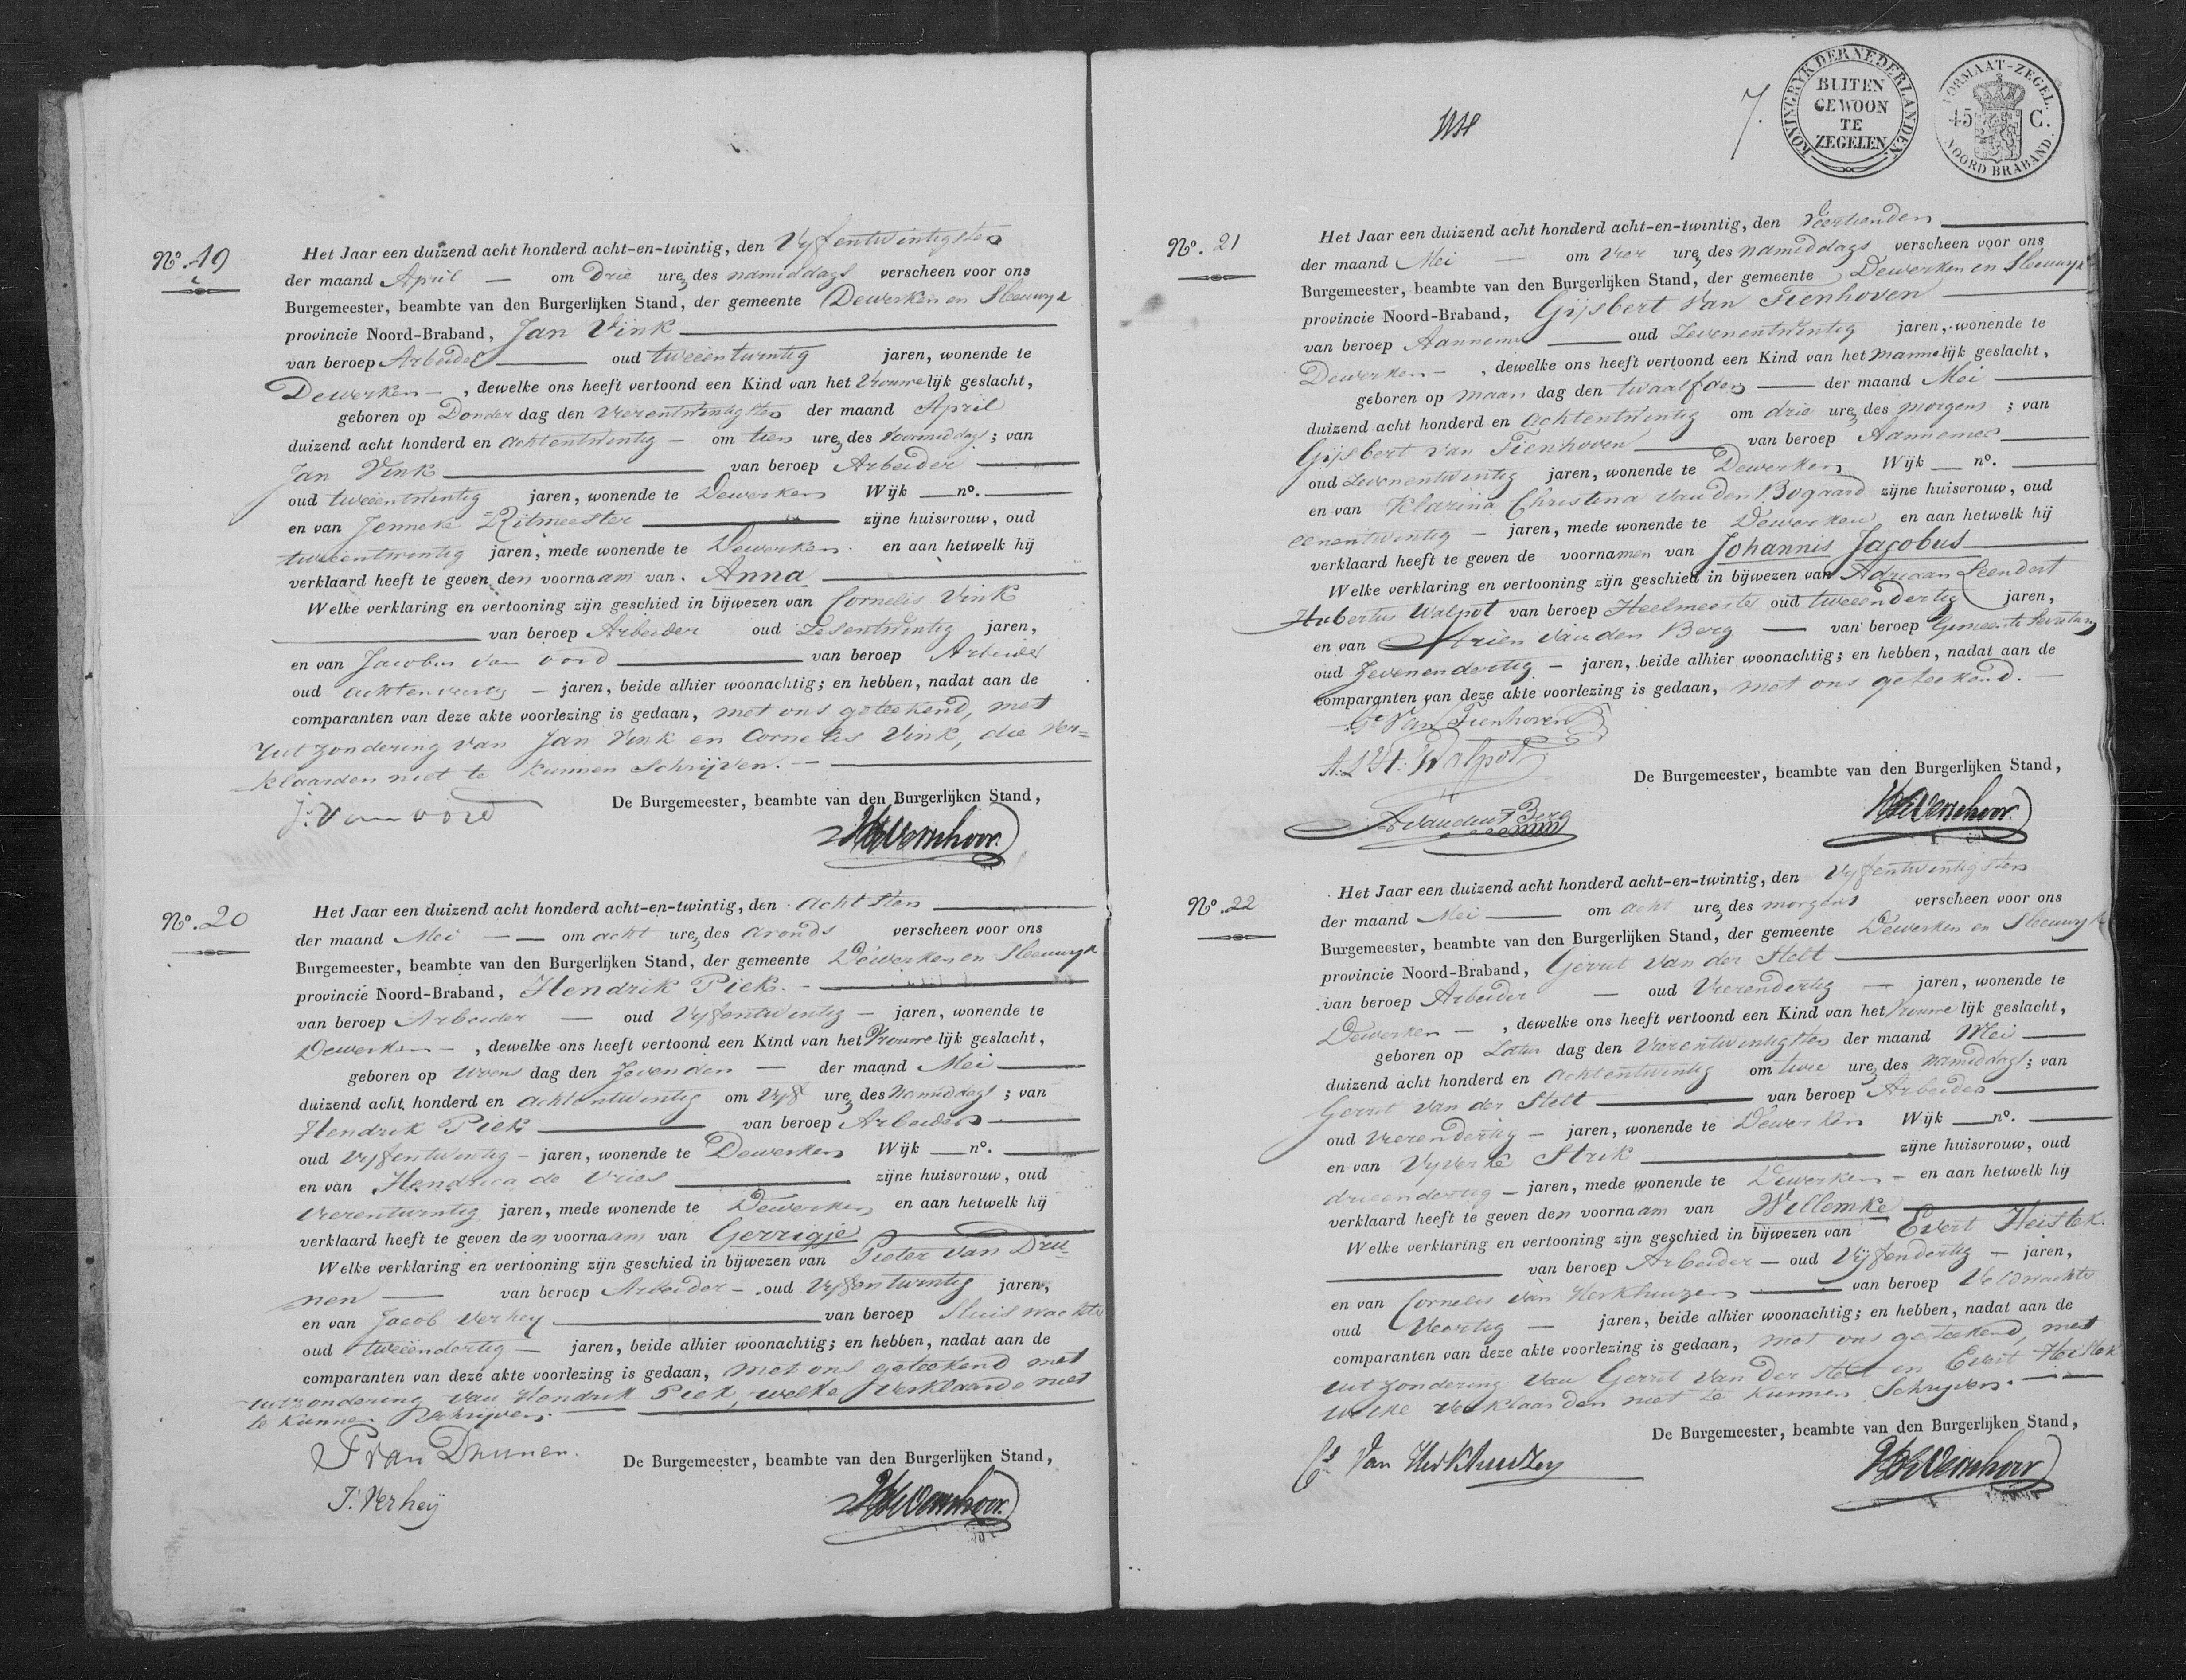 Nº. 19
Het Jaar een duizend acht honderd acht-en-twintig, den Vyfentwintigsten
der maand April — om drie ure, des namiddags verscheen voor ons
Burgemeester, beambte van den Burgerlijken Stand, der gemeente Dewerken en Sleeuwyk
provincie Noord-Braband, Jan Vink
van beroep Arbeider oud tweeentwintig jaren, wonende te
Dewerken — , dewelke ons heeft vertoond een Kind van het Vrouwelijk geslacht,
geboren op Donder dag den Vierentwintigsten der maand April
duizend acht honderd en achtentwintig — om tien ure, des voormiddags ; van
Jan Vink van beroep Arbeider
oud tweeentwintig jaren, wonende te Dewerken Wijk — nº. —
en van Jenneke Ritmeester zijne huisvrouw, oud
tweeentwintig jaren, mede wonende te Dewerken. en aan hetwelk hij
verklaard heeft te geven den voornaam van. Anna
Welke verklaring en vertooning zijn geschied in bijwezen van Cornelis Vink
van beroep Arbeider oud Zesentwintig jaren,
en van Jacobus van oord van beroep Arbeider
oud achtenveertig — jaren, beide alhier woonachtig; en hebben, nadat aan de
comparanten van deze akte voorlezing is gedaan, met ons geteekend, met
uitzondering van Jan Vink en Cornelis Vink, die ver=
klaarden niet te kunnen Schrijven. —
J. van oord
De Burgemeester, beambte van den Burgerlijken Stand,
Nº. 20
Het Jaar een duizend acht honderd acht-en-twintig, den achtsten
der maand Mei — — om acht ure, des avonds verscheen voor ons
Burgemeester, beambte van den Burgerlijken Stand, der gemeente Dewerken en Sleeuwyk
provincie Noord-Braband, Hendrik Piek. —
van beroep Arbeider — oud Vyfentwintig — jaren, wonende te
Dewerken — , dewelke ons heeft vertoond een Kind van het Vrouwelijk geslacht,
geboren op Woens dag den Zevenden — der maand Mei
duizend acht honderd en achtentwintig om Vyf ure, des Namiddags ; van
Hendrik Piek van beroep Arbeider
oud Vyfentwintig — jaren, wonende te Dewerken Wijk — nº. —
en van Hendrica de Vries zijne huisvrouw, oud
Vierentwintig jaren, mede wonende te Dewerken en aan hetwelk hij
verklaard heeft te geven den voornaam van Gerrigje
Welke verklaring en vertooning zijn geschied in bijwezen van Pieter van Dru=
nen — van beroep Arbeider — oud Vyfentwintig jaren,
en van Jacob Verhey van beroep Sluiswachter
oud tweeendertig — jaren, beide alhier woonachtig; en hebben, nadat aan de
comparanten van deze akte voorlezing is gedaan, met ons geteekend met
uitzondering van Hendrik Piek, welke verklaarde niet
te kunnen Schrijven.
P van Drunen.
J. Verheij
De Burgemeester, beambte van den Burgerlijken Stand,
7.
KONINGRYK DER NEDERLANDEN.
BUITEN
GEWOON
TE
ZEGELEN
FORMAAT-ZEGEL.
45 C.
NOORD BRABAND.
Nº. 21
Het Jaar een duizend acht honderd acht-en-twintig, den Veertienden
der maand Mei — om Vier ure, des namiddags verscheen voor ons
Burgemeester, beambte van den Burgerlijken Stand, der gemeente Dewerken en Sleeuwyk
provincie Noord-Braband, Gijsbert van Tienhoven
van beroep Aannemer oud Zevenentwintig jaren, wonende te
Dewerken — , dewelke ons heeft vertoond een Kind van het mannelijk geslacht,
geboren op maan dag den twaalfden — der maand Mei
duizend acht honderd en achtentwintig om drie ure, des morgens ; van
Gijsbert van Tienhoven van beroep Aannemer
oud Zevenentwintig jaren, wonende te Dewerken Wijk — nº. —
en van Klarina Christina van den Bogaard zijne huisvrouw, oud
eenentwintig — jaren, mede wonende te Dewerken en aan hetwelk hij
verklaard heeft te geven de voornamen van Johannis Jacobus
Welke verklaring en vertooning zijn geschied in bijwezen van Adriaan Leendert
Hubertus Walpot van beroep Heelmeester oud tweeendertig jaren,
en van Arien van den Berg — van beroep Gemeente Secretaris
oud Zevenendertig — jaren, beide alhier woonachtig; en hebben, nadat aan de
comparanten van deze akte voorlezing is gedaan, met ons geteekend. —
Gt Van Tienhoven
A: L H: Walpot
A vanden Berg
De Burgemeester, beambte van den Burgerlijken Stand,
Nº. 22
Het Jaar een duizend acht honderd acht-en-twintig, den Vyfentwintigsten
der maand Mei — om acht ure, des morgens verscheen voor ons
Burgemeester, beambte van den Burgerlijken Stand, der gemeente Dewerken en Sleeuwyk
provincie Noord-Braband, Gerrit van der Stelt
van beroep Arbeider — oud Vierendertig — jaren, wonende te
Dewerken — , dewelke ons heeft vertoond een Kind van het Vrouwelijk geslacht,
geboren op Zatur dag den Vierentwintigsten der maand Mei
duizend acht honderd en achtentwintig om twee ure, des namiddags ; van
Gerrit van der Stelt van beroep Arbeider
oud Vierendertig — jaren, wonende te Dewerken Wijk — nº. —
en van Vyverke Strik zijne huisvrouw, oud
drieendertig — jaren, mede wonende te Dewerken — en aan hetwelk hij
verklaard heeft te geven den voornaam van Willemke
Welke verklaring en vertooning zijn geschied in bijwezen van Evert Heistek
van beroep Arbeider — oud Vijfendertig — jaren,
en van Cornelis van Herkhuizen van beroep Veldwachter
oud Veertig — jaren, beide alhier woonachtig; en hebben, nadat aan de
comparanten van deze akte voorlezing is gedaan, met ons geteekend, met
uitzondering van Gerrit van der Stelt en Evert Heistek
welke verklaarden niet te kunnen Schrijven. —
Cs Van Herkhuizen
De Burgemeester, beambte van den Burgerlijken Stand,